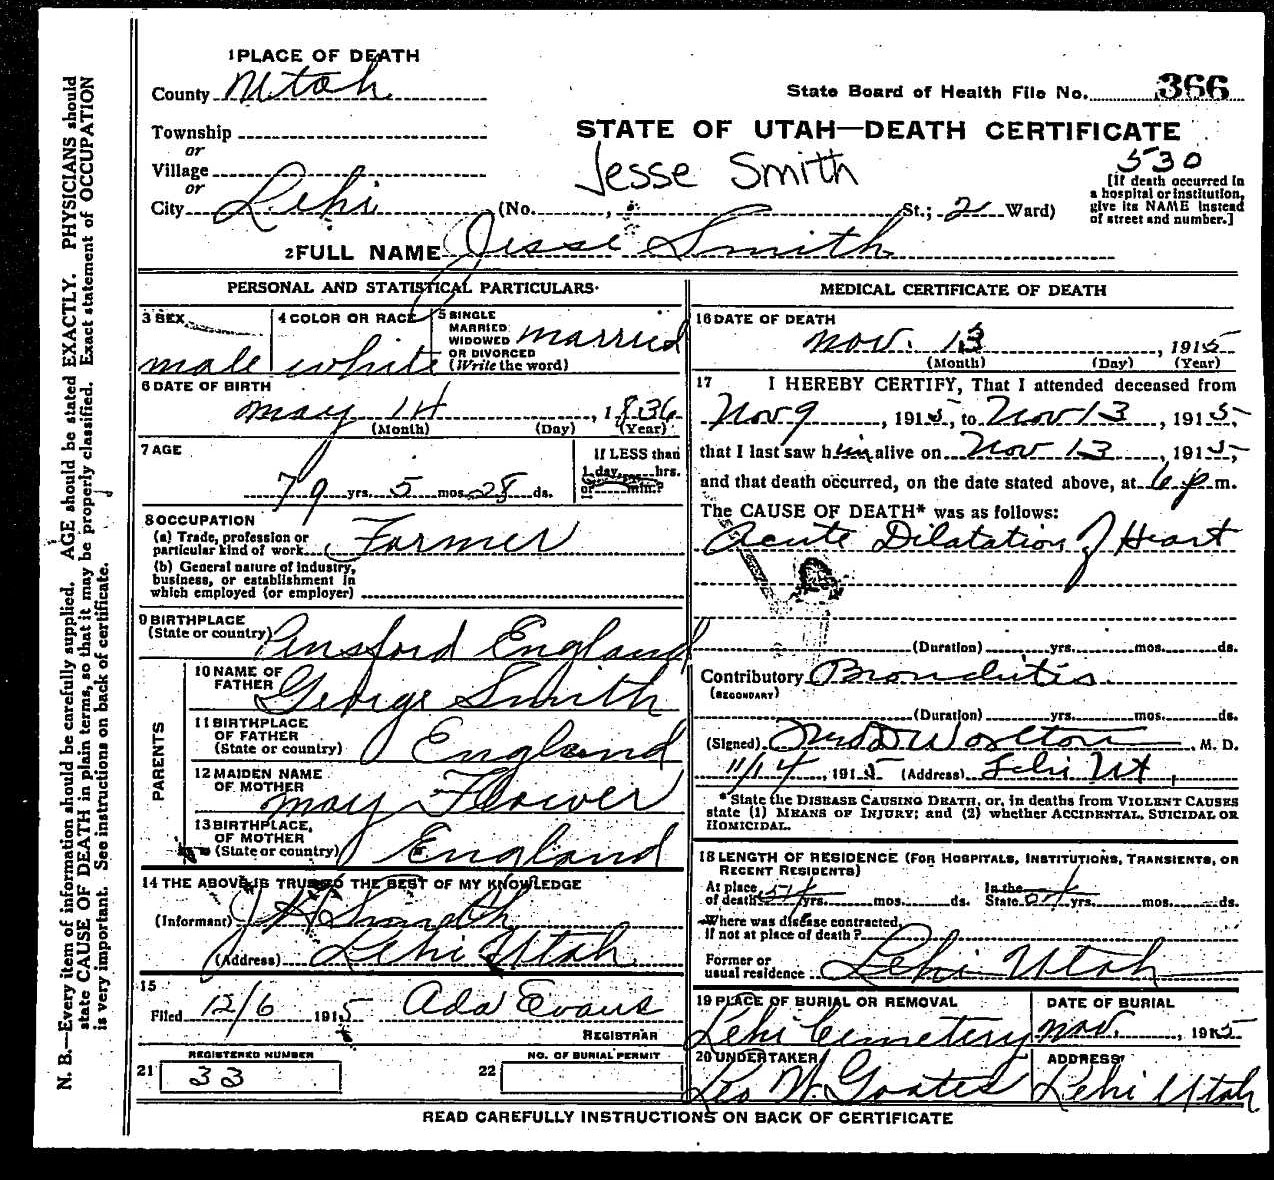 1 PLACE OF DEATH
County Utah
State Board of Health File No. 366
Township
or
STATE OF UTAH—DEATH CERTIFICATE
Village
or
Jesse Smith
530
[If death occurred in
a hospital or institution,
give its NAME instead
of street and number.]
City Lehi (No. , St.; 2 Ward)
2 FULL NAME Jesse Smith
PERSONAL AND STATISTICAL PARTICULARS
3 SEX
male
4 COLOR OR RACE
white
5 SINGLE
MARRIED
WIDOWED
OR DIVORCED
(Write the word)
married
6 DATE OF BIRTH
may 14, 1836
(Month) (Day) (Year)
7 AGE
79 yrs. 5 mos. 28 ds.
If LESS than
1 day, hrs.
min.?
8 OCCUPATION
(a) Trade, profession or
particular kind of work Farmer
(b) General nature of industry,
business, or establishment in
which employed (or employer)
9 BIRTHPLACE
(State or country) Pensford England
PARENTS
10 NAME OF
FATHER George Smith
11 BIRTHPLACE
OF FATHER
(State or country) England
12 MAIDEN NAME
OF MOTHER may Flower
13 BIRTHPLACE,
OF MOTHER
(State or country) England
14 THE ABOVE IS TRUE TO THE BEST OF MY KNOWLEDGE
(Informant) J H Smith
(Address) Lehi Utah
15
Filed 12/6 1915 Ada Evans
REGISTRAR
REGISTERED NUMBER
21 33
NO. OF BURIAL PERMIT
22
MEDICAL CERTIFICATE OF DEATH
16 DATE OF DEATH
nov. 13, 1915
(Month) (Day) (Year)
17 I HEREBY CERTIFY, That I attended deceased from
Nov 9, 1915, to Nov 13, 1915,
that I last saw him alive on Nov 13, 1915,
and that death occurred, on the date stated above, at 6 p m.
The CAUSE OF DEATH* was as follows:
Acute Dilatation of Heart
(Duration) yrs. mos. ds.
Contributory Bronchitis.
(SECONDARY)
(Duration) yrs. mos. ds.
(Signed) Worlton, M. D.
11/14, 1915 (Address) Lehi Ut
*State the DISEASE CAUSING DEATH, or, in deaths from VIOLENT CAUSES
state (1) MEANS OF INJURY; and (2) whether ACCIDENTAL, SUICIDAL OR
HOMICIDAL.
18 LENGTH OF RESIDENCE (FOR HOSPITALS, INSTITUTIONS, TRANSIENTS, OR
RECENT RESIDENTS)
At place
of death 54 yrs. mos. ds.
In the
State 54 yrs. mos. ds.
Where was disease contracted,
If not at place of death?
Former or
usual residence Lehi Utah
19 PLACE OF BURIAL OR REMOVAL
Lehi Cemetery
DATE OF BURIAL
nov. , 1915
20 UNDERTAKER
Leo W. Goates
ADDRESS
Lehi Utah
READ CAREFULLY INSTRUCTIONS ON BACK OF CERTIFICATE
N. B.—Every item of information should be carefully supplied. AGE should be stated EXACTLY. PHYSICIANS should
state CAUSE OF DEATH in plain terms, so that it may be properly classified. Exact statement of OCCUPATION
is very important. See instructions on back of certificate.